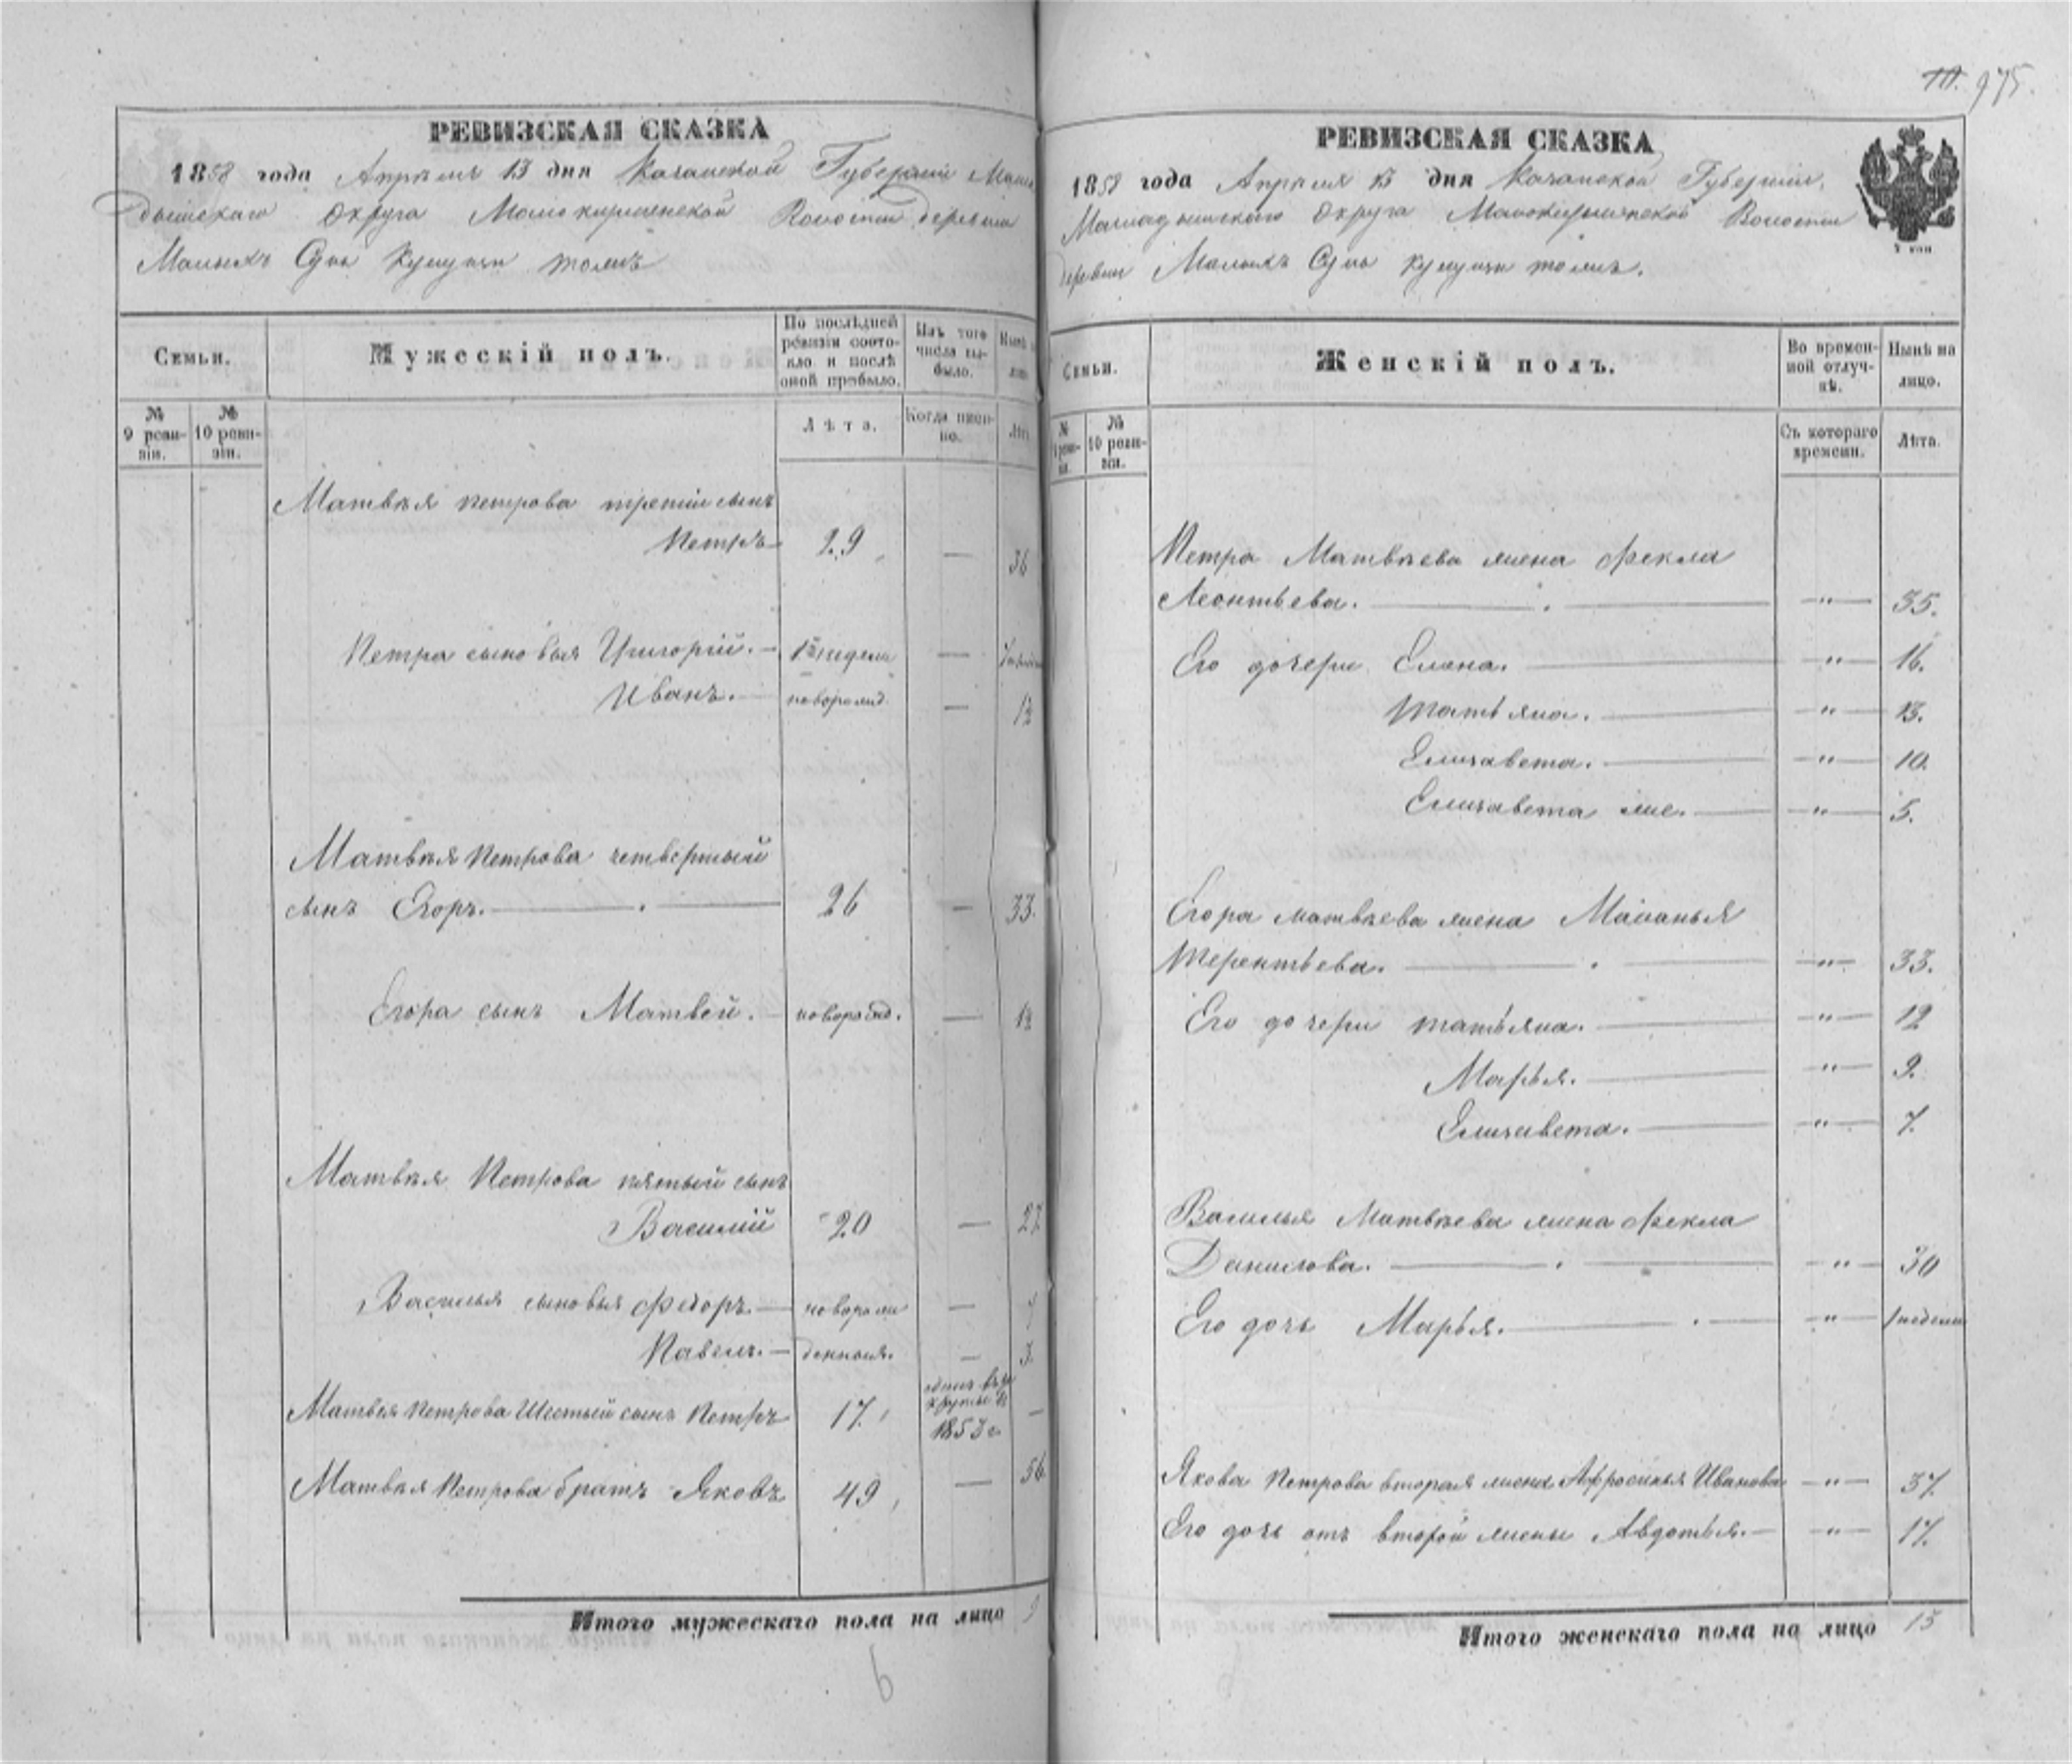 975.
РЕВИЗСКАЯ СКАЗКА
1858 года Апреля 15 дня Казанской Губерніи Мама
дышскаго Округа Волости деревни
Малыхъ Сунь тожъ
Семьи.
Мужескій полъ.
По послѣдней ревизіи состояло и послѣ оной прибыло.
Изъ того числа выбыло.
Нынѣ на лицо
№ 9 ревизіи.
№ 10 ревизіи.
Лѣта.
Когда именно.
Матвѣя Петрова третій сынъ
Петръ 29 — 36
Петра сыновья Григорій. —
Иванъ. — новорожд. — 1½
Матвѣя Петрова четвертый
сынъ Егоръ. — 26 — 33.
Егора сынъ Матвѣй. — новорожд. — 1½
Матвѣя Петрова пятый сынъ
Василій 20 — 27
Василья сыновья Федоръ. — новорож —
Павелъ. — денныя. — 3.
Матвѣя Петрова Шестый сынъ Петръ 17. 1853 г. —
Матвѣя Петрова братъ Яковъ 49 — 56
Итого мужескаго пола на лицо 9
6
РЕВИЗСКАЯ СКАЗКА
1858 года Апреля 15 дня Казанской Губерніи,
Мамадышскаго Округа Волости
деревни Малыхъ Сунь тожъ.
7 коп
Семьи.
Женскій полъ.
Во временной отлучкѣ.
Нынѣ на лицо.
№ 10 ревизіи.
Съ котораго времени.
Лѣта.
Петра Матвѣева жена Фекла
Леонтьева. — " — 35.
Его дочери Елена. — " — 16.
Татьяна. — " — 13.
Елизавета. — " — 10.
Елизавета же. — " — 5.
Егора Матвѣева жена Маланья
Терентьева. — " — 33.
Его дочери Татьяна. — " — 12
Марья. — " — 9.
Елизавета. — " — 7.
Василья Матвѣева жена Фекла
Данилова. — " — 30
Его дочь Марья. — " — 1 недели
Якова Петрова вторая жена Афросинья Иванова — " — 37.
Его дочь отъ второй жены Авдотья. — " — 17.
Итого женскаго пола на лицо 15